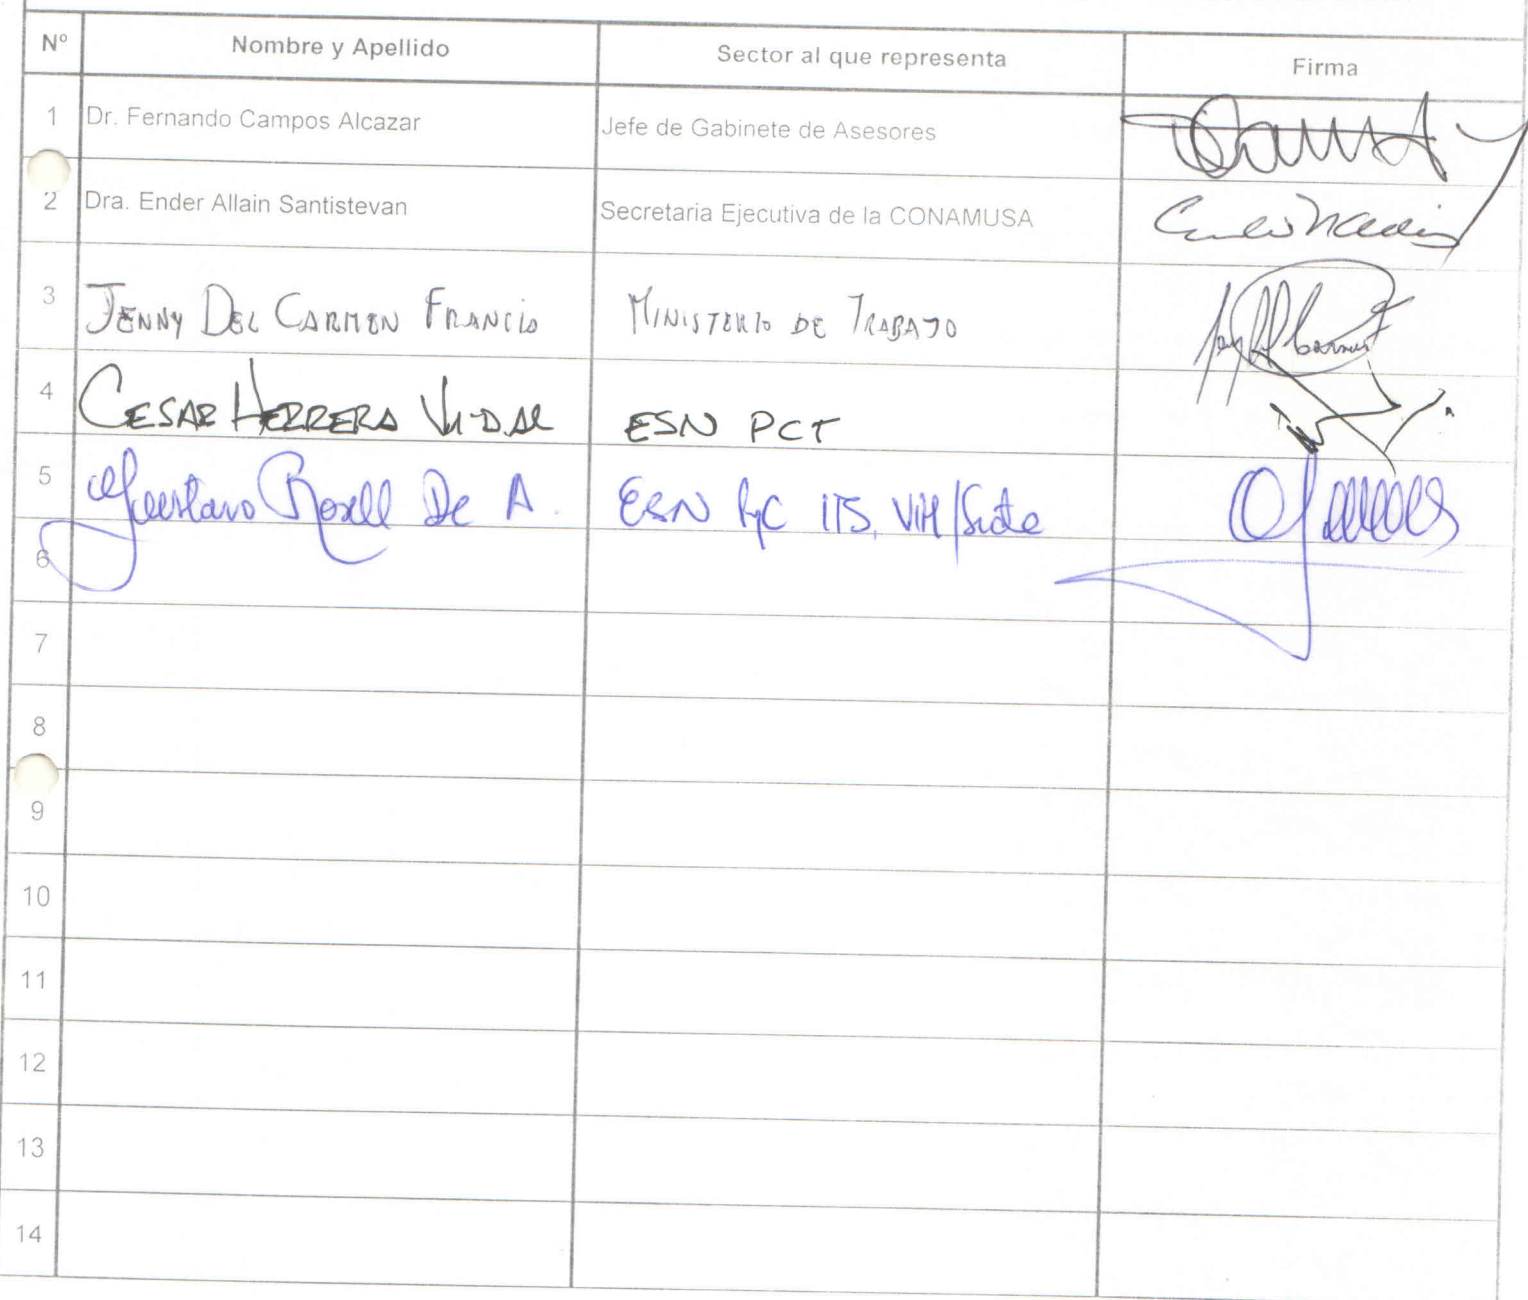 Nº Nombre y Apellido Sector al que representa Firma
1 Dr. Fernando Campos Alcazar Jefe de Gabinete de Asesores
2 Dra. Ender Allain Santistevan Secretaria Ejecutiva de la CONAMUSA
3 JENNY DEL CARMEN FRANCIA MINISTERIO DE TRABAJO
4 CESAR HERRERA VIDAL ESN PCT
5 Gustavo Rosell De A. ESN PyC ITS, VIH/Sida
6
7
8
9
10
11
12
13
14